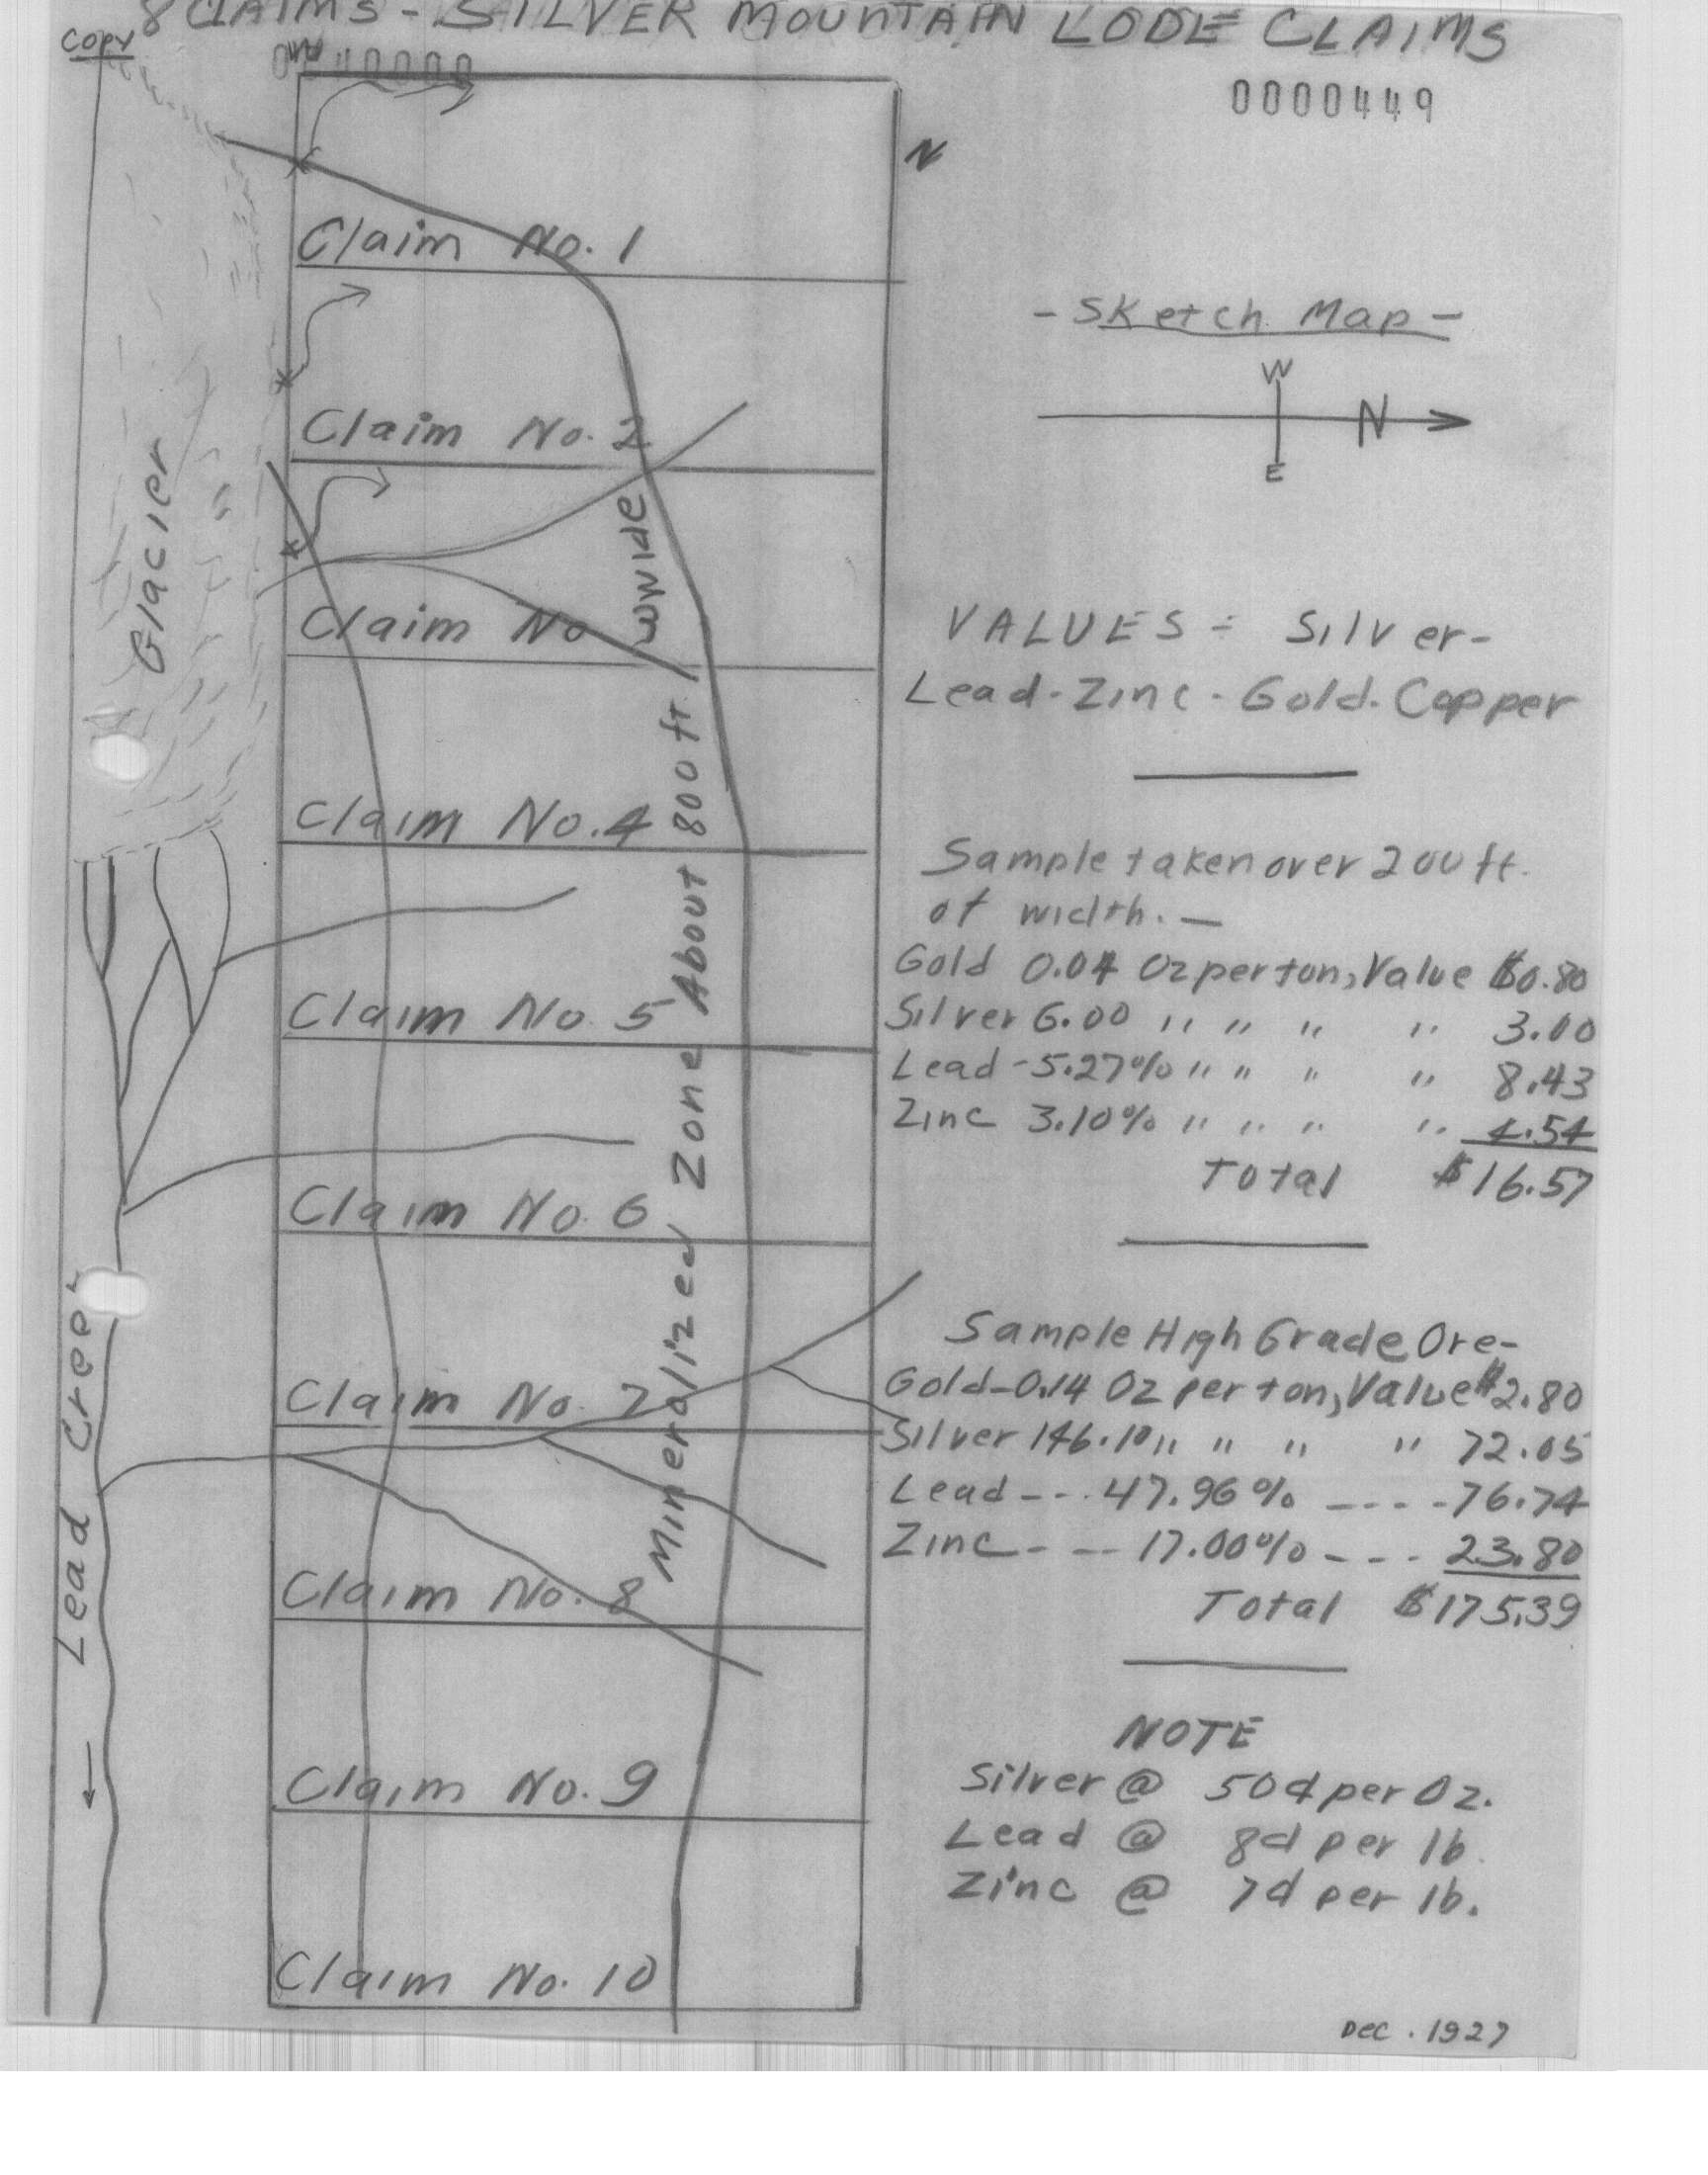 8 CLAIMS - SILVER MOUNTAIN LODE CLAIMS
Copy
W
0000449
N
Claim No. 1
- Sketch Map -
W
N
E
Claim No. 2
Glacier
Claim No
VALUES = Silver-
Lead-Zinc-Gold-Copper
Claim No. 4
Sample taken over 200 ft.
of width. —
Gold 0.04 Oz per ton, Value $0.80
Silver 6.00 " " " " 3.00
Lead - 5.27% " " " " 8.43
Zinc 3.10% " " " " 4.54
Total $16.57
Claim No. 5
Claim No. 6
Mineralized Zone About 800 ft wide
Sample High Grade Ore-
Gold-0.14 Oz per ton, Value $2.80
Silver 146.10 " " " " 72.05
Lead --- 47.96% ---- 76.74
Zinc --- 17.00% --- 23.80
Total $175.39
Claim No. 7
Lead Creek
Claim No. 8
NOTE
Silver @ 50¢ per Oz.
Lead @ 8¢ per lb.
Zinc @ 7¢ per lb.
Claim No. 9
Claim No. 10
Dec. 1927